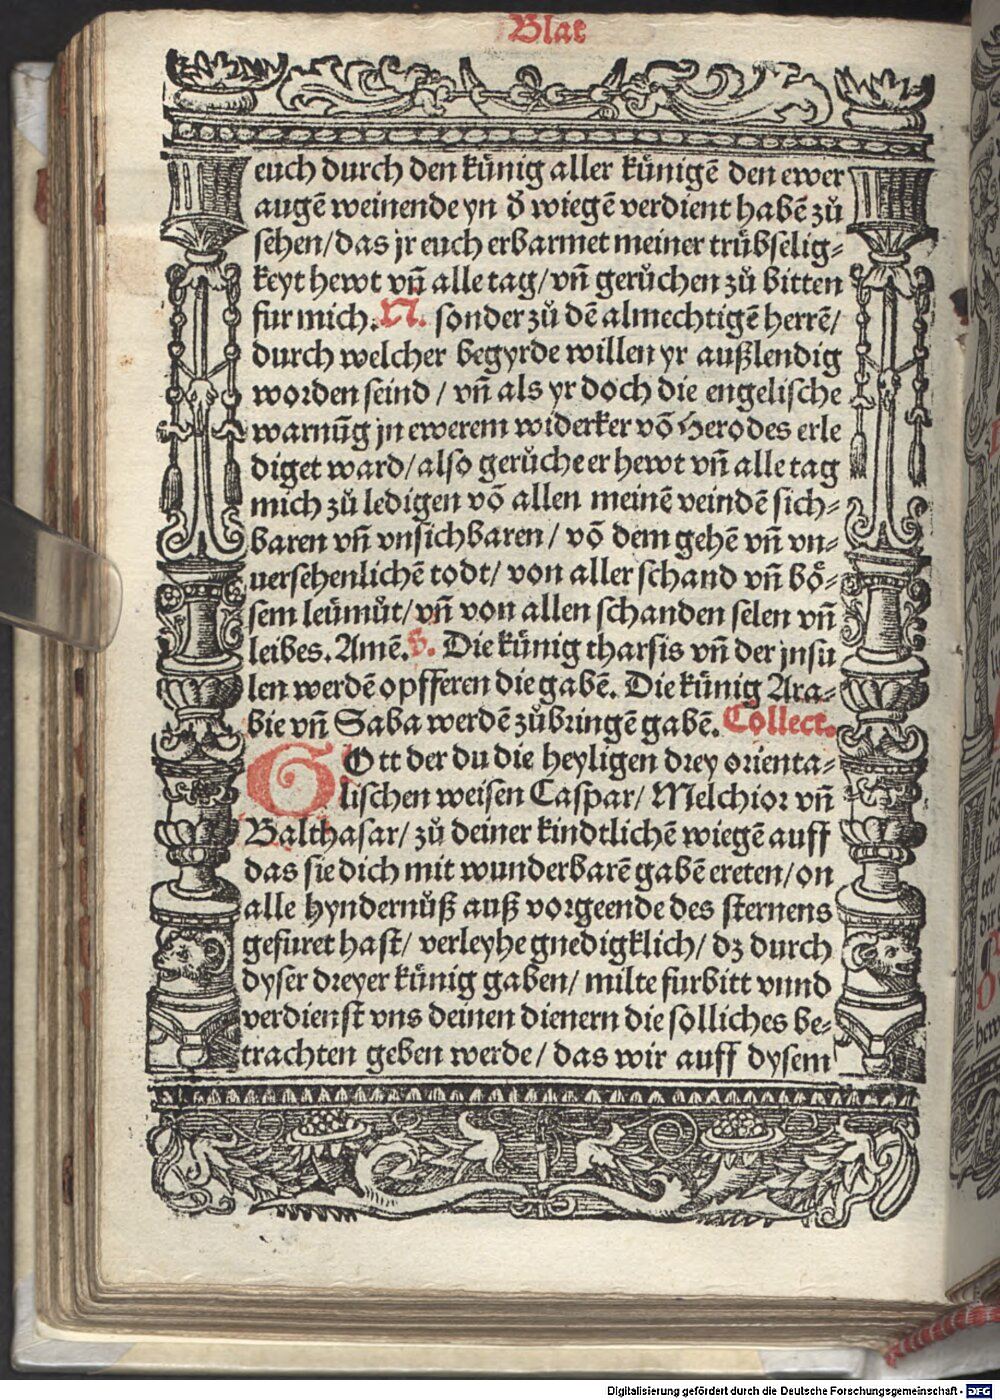 Blat
euch durch den künig aller künigē den ewer
augē weinende yn d̕ wiegē verdient habē zů
sehen/das jr euch erbarmet meiner trübselig⸗
keyt hewt vñ alle tag/vñ gerůchen zů bitten
fur mich. N. sonder zů dē almechtigē herrē/
durch welcher begyrde willen yr außlendig
worden seind / vñ als yr doch die engelische
warnūg jn ewerem widerker vō Herodes erle
diget ward/also gerůche er hewt vñ alle tag
mich zů ledigen vō allen meinē veindē sich⸗
baren vñ vnsichbaren / vō dem gehē vñ vn⸗
uersehenlichē todt/ von aller schand vñ bö⸗
sem leümůt/vñ von allen schanden selen vñ
leibes. Amē. Die künig tharsis vñ der jnsu
len werdē opfferen die gabē. Die künig Ara⸗
bie vñ Saba werdē zůbringē gabē. Collect.
GOtt der du die heyligen drey orienta⸗
lischen weisen Caspar/ Melchior vñ
Balthasar/ zů deiner kindtlichē wiegē auff
das sie dich mit wunderbarē gabē ereten/on
alle hyndernůß auß vorgeende des sternens
gefuret hast/ verleyhe gnedigklich/ dz durch
dyser dreyer künig gaben/ milte furbitt vnnd
verdienst vns deinen dienern die solliches be⸗
trachten geben werde/ das wir auff dysem
Digitalisierung gefördert durch die Deutsche Forschungsgemeinschaft - DFG